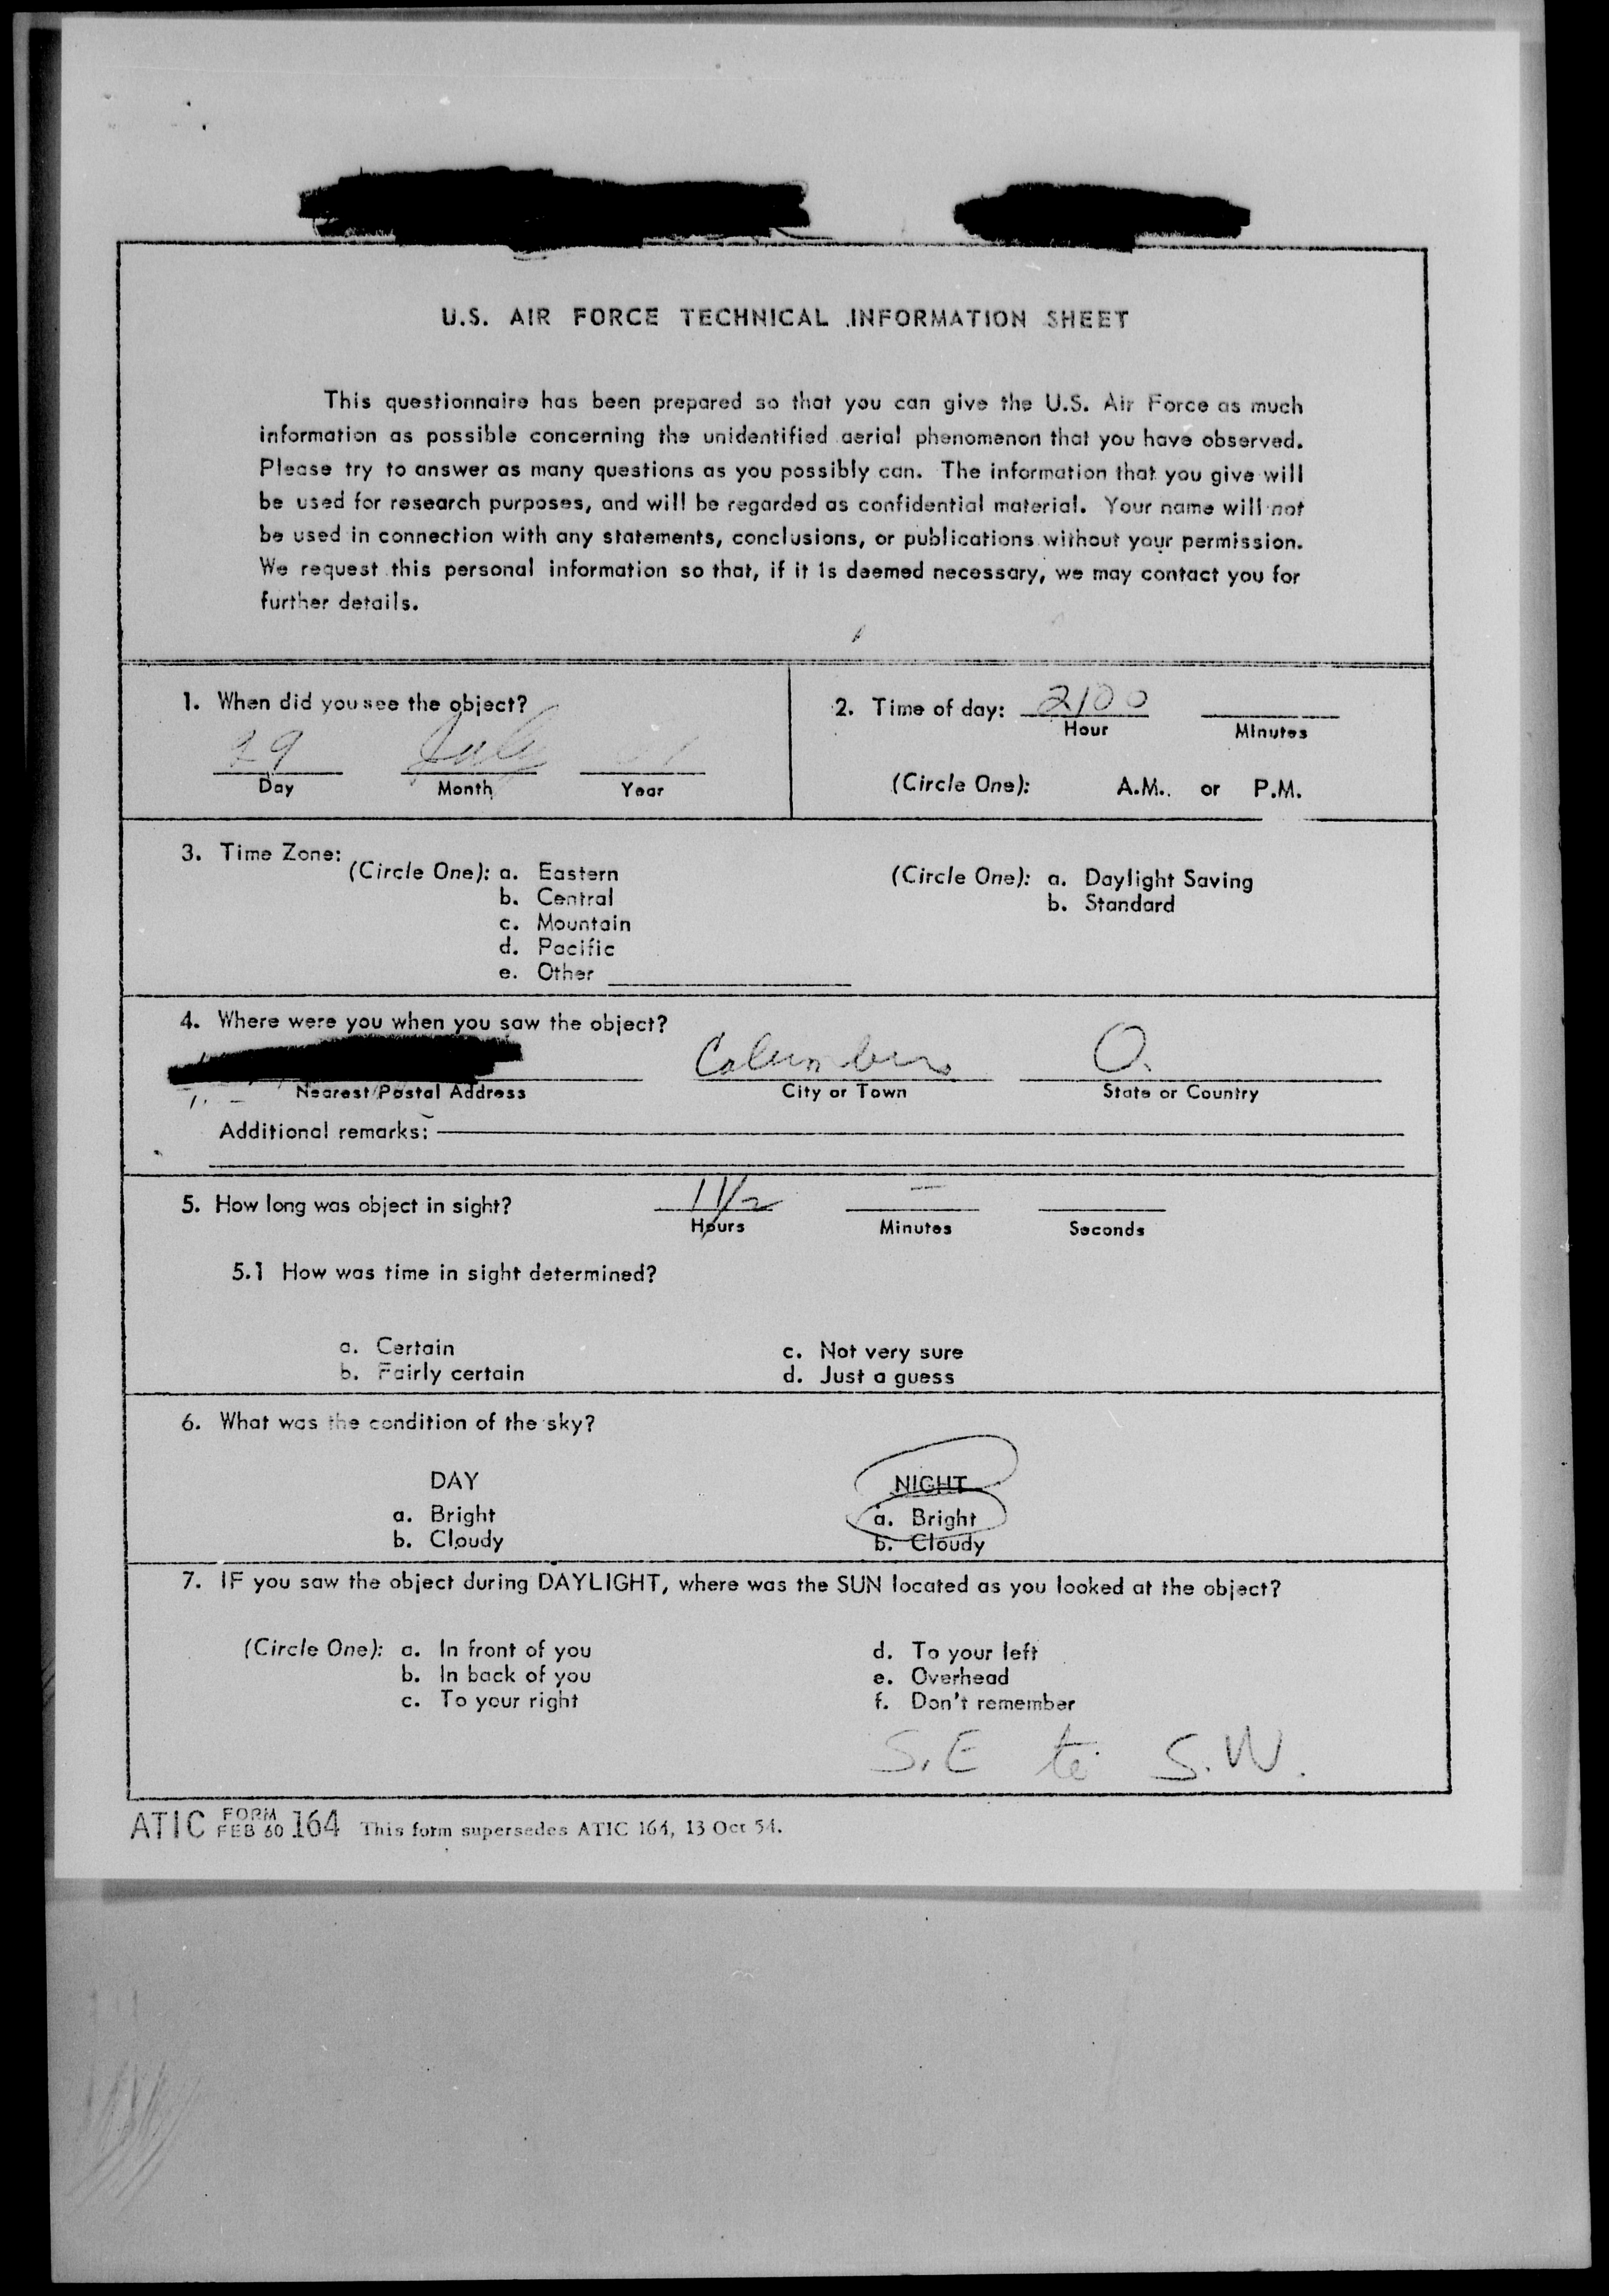 U.S. AIR FORCE TECHNICAL INFORMATION SHEET
This questionnaire has been prepared so that you can give the U.S. Air Force as much
information as possible concerning the unidentified aerial phenomenon that you have observed.
Please try to answer as many questions as you possibly can. The information that you give will
be used for research purposes, and will be regarded as confidential material. Your name will not
be used in connection with any statements, conclusions, or publications without your permission.
We request this personal information so that, if it is deemed necessary, we may contact you for
further details.
1. When did you see the object?
29 July
Day Month Year
2. Time of day: 2100
Hour Minutes
(Circle One): A.M. or P.M.
3. Time Zone:
(Circle One): a. Eastern
b. Central
c. Mountain
d. Pacific
e. Other
(Circle One): a. Daylight Saving
b. Standard
4. Where were you when you saw the object?
Columbus O.
Nearest Postal Address City or Town State or Country
Additional remarks:
5. How long was object in sight? 1 1/2 —
Hours Minutes Seconds
5.1 How was time in sight determined?
a. Certain c. Not very sure
b. Fairly certain d. Just a guess
6. What was the condition of the sky?
DAY NIGHT
a. Bright a. Bright
b. Cloudy b. Cloudy
7. IF you saw the object during DAYLIGHT, where was the SUN located as you looked at the object?
(Circle One): a. In front of you d. To your left
b. In back of you e. Overhead
c. To your right f. Don't remember
S.E to S.W.
ATIC FORM FEB 60 164 This form supersedes ATIC 164, 13 Oct 54.